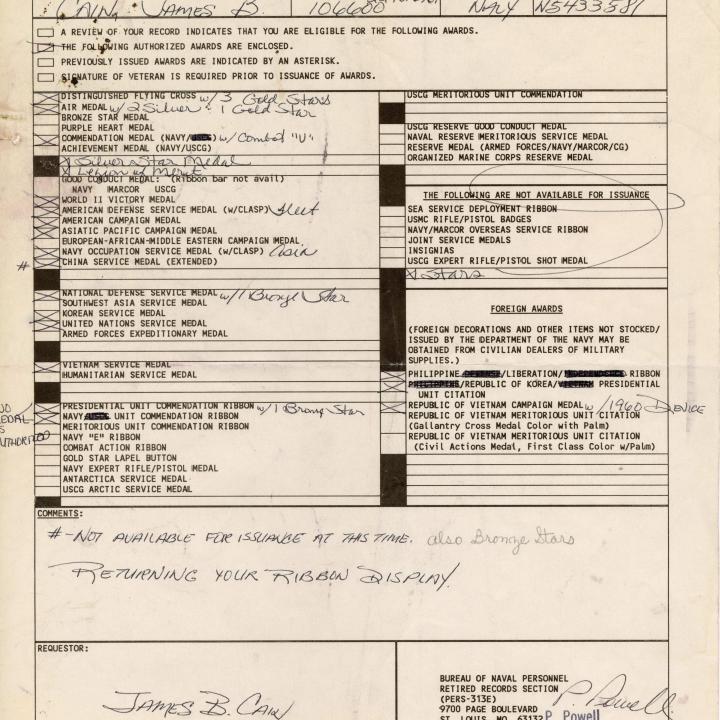 CAIN, JAMES B. 106600 NAVY N5433581
A REVIEW OF YOUR RECORD INDICATES THAT YOU ARE ELIGIBLE FOR THE FOLLOWING AWARDS.
THE FOLLOWING AUTHORIZED AWARDS ARE ENCLOSED.
PREVIOUSLY ISSUED AWARDS ARE INDICATED BY AN ASTERISK.
SIGNATURE OF VETERAN IS REQUIRED PRIOR TO ISSUANCE OF AWARDS.
DISTINGUISHED FLYING CROSS w/ 3 Gold Stars
AIR MEDAL w/ 2 Silver + 1 Gold Star
BRONZE STAR MEDAL
PURPLE HEART MEDAL
COMMENDATION MEDAL (NAVY/USCG) w/ Combat "V"
ACHIEVEMENT MEDAL (NAVY/USCG)
X Silver Star Medal
X Legion of Merit
GOOD CONDUCT MEDAL: (Ribbon bar not avail)
NAVY MARCOR USCG
WORLD II VICTORY MEDAL
AMERICAN DEFENSE SERVICE MEDAL (W/CLASP) Fleet
AMERICAN CAMPAIGN MEDAL
ASIATIC PACIFIC CAMPAIGN MEDAL
EUROPEAN-AFRICAN-MIDDLE EASTERN CAMPAIGN MEDAL
NAVY OCCUPATION SERVICE MEDAL (W/CLASP) Asia
# CHINA SERVICE MEDAL (EXTENDED)
NATIONAL DEFENSE SERVICE MEDAL w/ 1 Bronze Star
SOUTHWEST ASIA SERVICE MEDAL
KOREAN SERVICE MEDAL
UNITED NATIONS SERVICE MEDAL
ARMED FORCES EXPEDITIONARY MEDAL
VIETNAM SERVICE MEDAL
HUMANITARIAN SERVICE MEDAL
PRESIDENTIAL UNIT COMMENDATION RIBBON w/ 1 Bronze Star
NAVY UNIT COMMENDATION RIBBON
MERITORIOUS UNIT COMMENDATION RIBBON
NAVY "E" RIBBON
COMBAT ACTION RIBBON
GOLD STAR LAPEL BUTTON
NAVY EXPERT RIFLE/PISTOL MEDAL
ANTARCTICA SERVICE MEDAL
USCG ARCTIC SERVICE MEDAL
USCG MERITORIOUS UNIT COMMENDATION
USCG RESERVE GOOD CONDUCT MEDAL
NAVAL RESERVE MERITORIOUS SERVICE MEDAL
RESERVE MEDAL (ARMED FORCES/NAVY/MARCOR/CG)
ORGANIZED MARINE CORPS RESERVE MEDAL
THE FOLLOWING ARE NOT AVAILABLE FOR ISSUANCE
SEA SERVICE DEPLOYMENT RIBBON
USMC RIFLE/PISTOL BADGES
NAVY/MARCOR OVERSEAS SERVICE RIBBON
JOINT SERVICE MEDALS
INSIGNIAS
USCG EXPERT RIFLE/PISTOL SHOT MEDAL
X Stars
FOREIGN AWARDS
(FOREIGN DECORATIONS AND OTHER ITEMS NOT STOCKED/
ISSUED BY THE DEPARTMENT OF THE NAVY MAY BE
OBTAINED FROM CIVILIAN DEALERS OF MILITARY
SUPPLIES.)
PHILIPPINE DEFENSE/LIBERATION/INDEPENDENCE RIBBON
PHILIPPINE/REPUBLIC OF KOREA/VIETNAM PRESIDENTIAL
UNIT CITATION
REPUBLIC OF VIETNAM CAMPAIGN MEDAL w/1960 DEVICE
REPUBLIC OF VIETNAM MERITORIOUS UNIT CITATION
(Gallantry Cross Medal Color with Palm)
REPUBLIC OF VIETNAM MERITORIOUS UNIT CITATION
(Civil Actions Medal, First Class Color w/Palm)
COMMENTS:
# - NOT AVAILABLE FOR ISSUANCE AT THIS TIME. also Bronze Stars
RETURNING YOUR RIBBON DISPLAY.
REQUESTOR:
JAMES B. CAIN
BUREAU OF NAVAL PERSONNEL
RETIRED RECORDS SECTION
(PERS-313E)
9700 PAGE BOULEVARD
ST. LOUIS, MO 63132
P. Powell
P. Powell